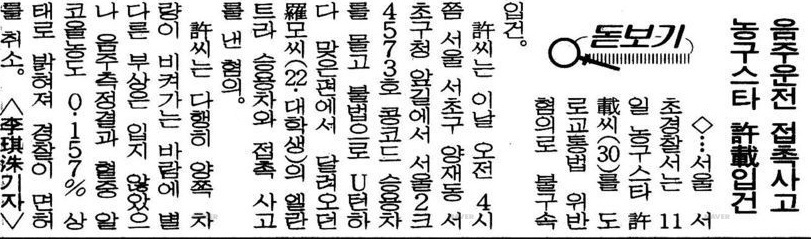 음주운전 접촉사고
농구스타 許載입건
돋보기
◇…서울 서
초경찰서는 11
일 농구스타 許
載씨(30)를 도
로교통법 위반
혐의로 불구속
입건.
許씨는 이날 오전 4시
쯤 서울 서초구 양재동 서
초구청 앞길에서 서울2크
4573호 콩코드 승용차
를 몰고 불법으로 U턴하
다 맞은편에서 달려오던
羅모씨(22·대학생)의 엘란
트라 승용차와 접촉 사고
를 낸 혐의.
許씨는 다행히 양쪽 차
량이 비켜가는 바람에 별
다른 부상은 입지 않았으
나 음주측정결과 혈중 알
코올농도 0·157% 상
태로 밝혀져 경찰이 면허
를 취소. <李琪洙기자>